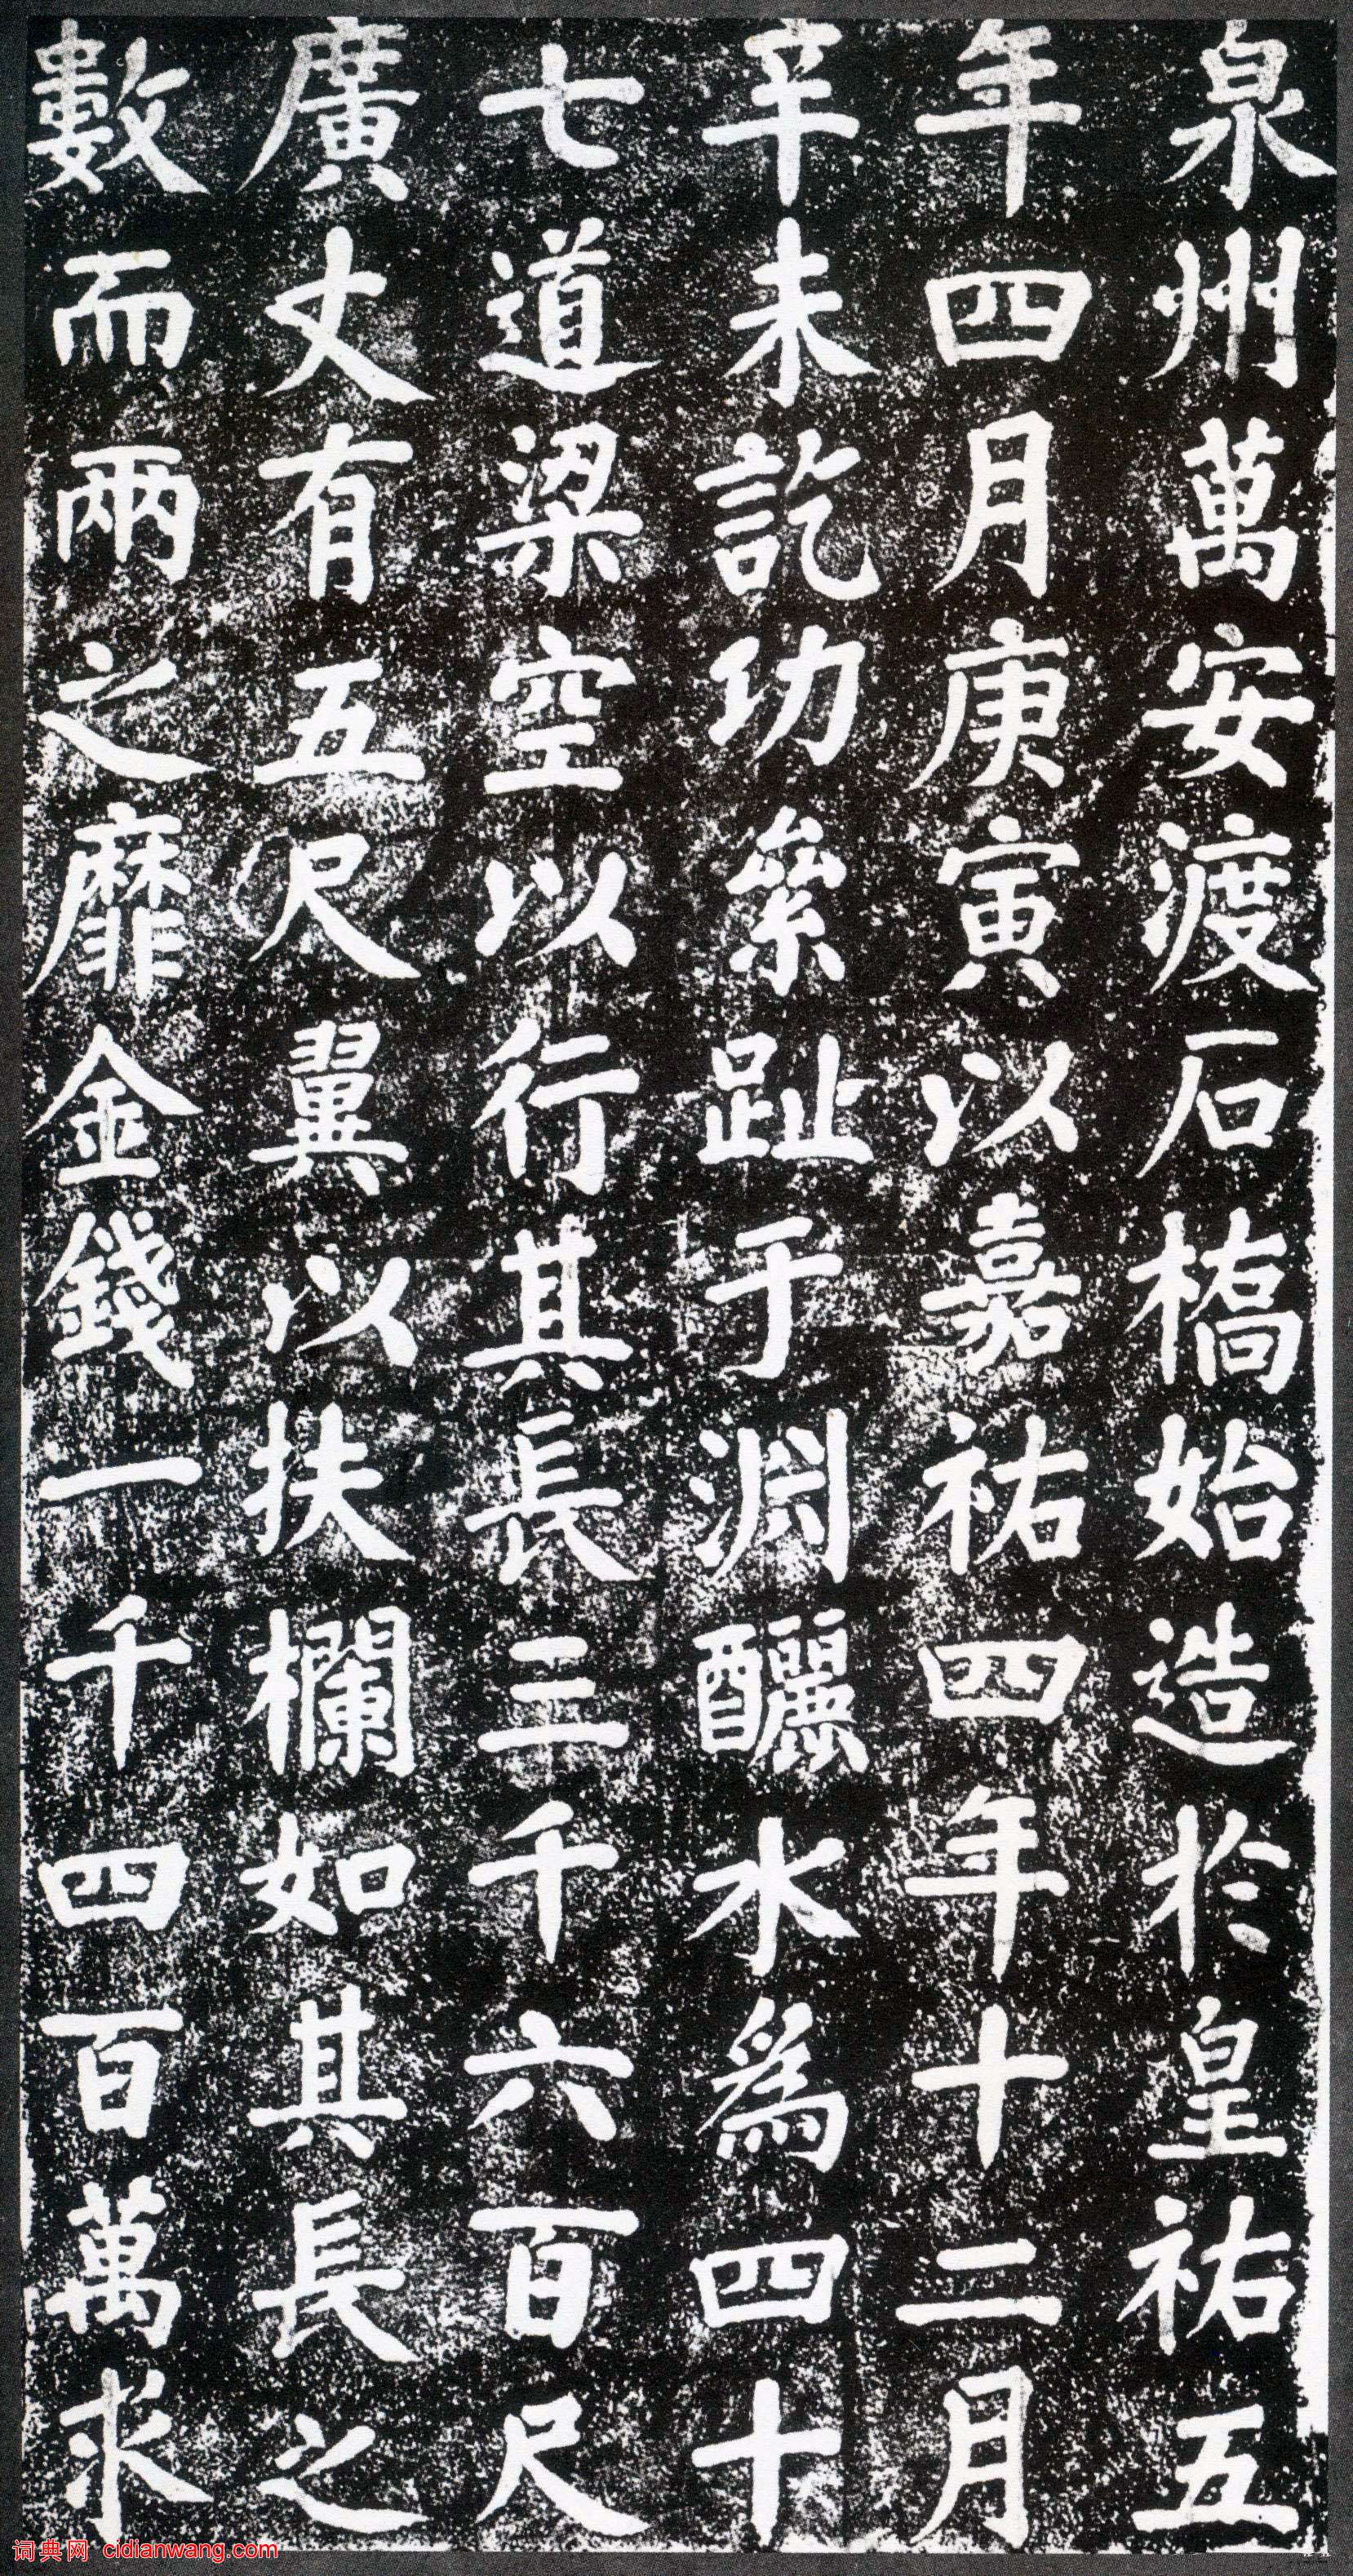 泉州萬安渡石橋始造於皇祐五
年四月庚寅以嘉祐四年十二月
辛未訖功絫趾于淵釃水為四十
七道梁空以行其長三千六百尺
廣丈有五尺翼以扶欄如其長之
數而兩之靡金錢一千四百萬求
词典网 cidianwang.com